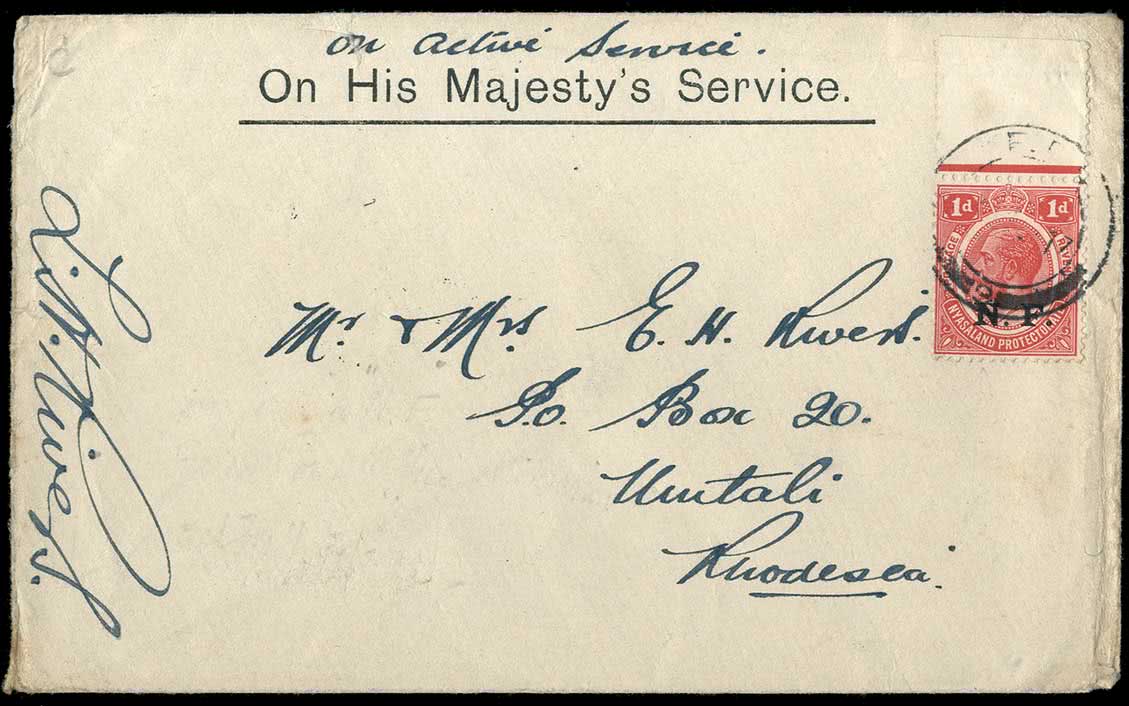 on active Service.
On His Majesty's Service.
1d 1d
N. F
NYASALAND PROTECTORATE
Mr & Mrs E. H.
P.o. Box 20.
Umtali
Rhodesia.